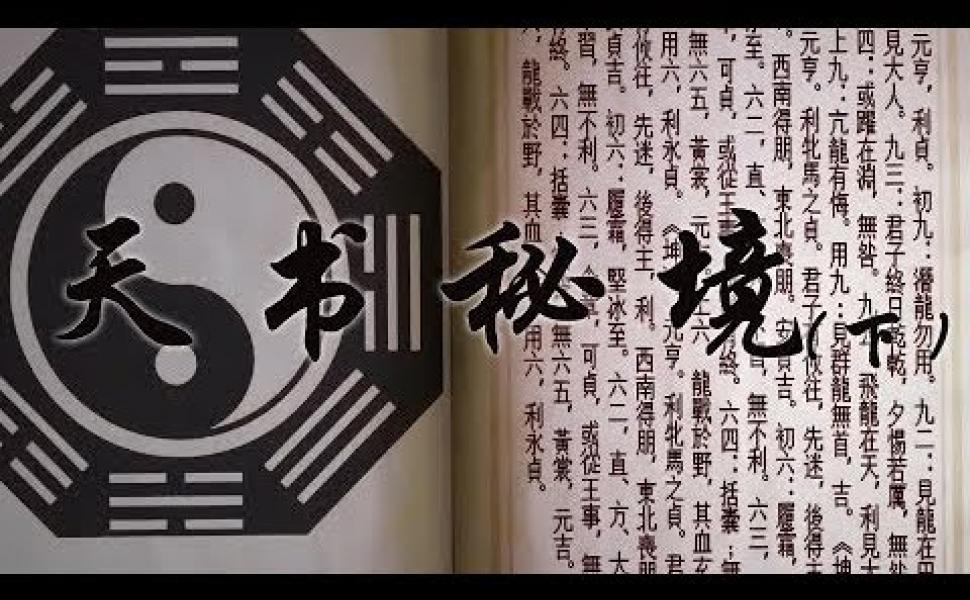 天书秘境（下）
元亨，利貞。初九：潛龍勿用。九二：見龍在田
見大人。九三：君子終日乾乾，夕惕若厲，無
四：或躍在淵，無咎。九 飛龍在天，利見大
上九：亢龍有悔。用九：見群龍無首，吉。《坤
元亨。利牝馬之貞。君子 攸往，先迷，後得主
。西南得朋，東北喪朋。安貞吉。初六：履霜，
至。六二，直、 無不利。六三，
，可貞，或從王 終。六四：括囊；無
無六五，黃裳，元 上六， 龍戰於野，其血玄
用六，利永貞。《坤 元亨。利牝馬之貞。君
攸往，先迷，後得主，利。西南得朋，東北喪朋
貞吉。初六：履霜，堅冰至。六二，直、方、大
習，無不利。六三， 章，可貞，或從王事，無
終。六四：括囊； 無六五，黃裳，元吉。
，龍戰於野，其血 用六，利永貞。